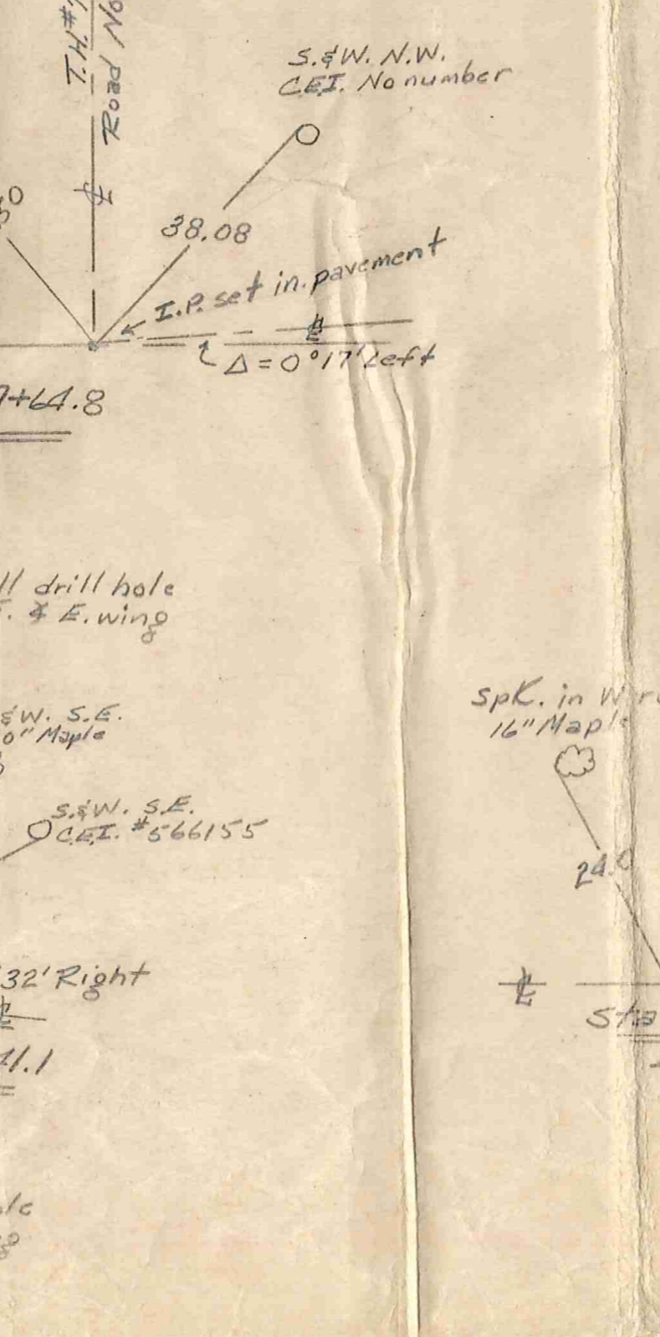 T.H.#
Road No
S.&W. N.W.
C.E.I. No number
38.08
I.P. set in pavement
℄
℄
Δ = 0°17' Left
7+64.8
drill hole
& E. wing
&W. S.E.
0" Maple
S.&W. S.E.
C.E.I. #566155
32' Right
℄
41.1
Spk. in
16" Maple
24.0
℄
Sta